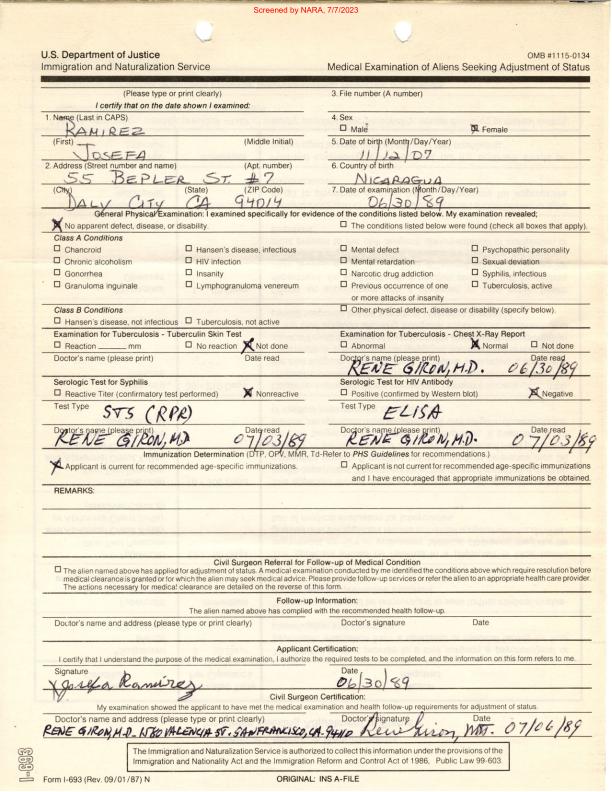 Screened by NARA, 7/7/2023
U.S. Department of Justice
OMB #1115-0134
Immigration and Naturalization Service
Medical Examination of Aliens Seeking Adjustment of Status
(Please type or print clearly)
3. File number (A number)
I certify that on the date shown I examined:
1. Name (Last in CAPS)
4. Sex
RAMIREZ
Male
Female
(First) (Middle Initial)
5. Date of birth (Month/Day/Year)
JOSEFA
11/12/07
2. Address (Street number and name) (Apt. number)
6. Country of birth
55 BEPLER ST. #7
NICARAGUA
(City) (State) (ZIP Code)
7. Date of examination (Month/Day/Year)
DALY CITY CA 94014
06/30/89
General Physical Examination: I examined specifically for evidence of the conditions listed below. My examination revealed;
No apparent defect, disease, or disability.
The conditions listed below were found (check all boxes that apply).
Class A Conditions
Chancroid Hansen's disease, infectious Mental defect Psychopathic personality
Chronic alcoholism HIV infection Mental retardation Sexual deviation
Gonorrhea Insanity Narcotic drug addiction Syphilis, infectious
Granuloma inguinale Lymphogranuloma venereum Previous occurrence of one Tuberculosis, active
or more attacks of insanity
Class B Conditions
Other physical defect, disease or disability (specify below).
Hansen's disease, not infectious Tuberculosis, not active
Examination for Tuberculosis - Tuberculin Skin Test
Examination for Tuberculosis - Chest X-Ray Report
Reaction mm No reaction Not done
Abnormal Normal Not done
Doctor's name (please print) Date read
Doctor's name (please print) Date read
RENE GIRON, M.D. 06/30/89
Serologic Test for Syphilis
Serologic Test for HIV Antibody
Reactive Titer (confirmatory test performed) Nonreactive
Positive (confirmed by Western blot) Negative
Test Type STS (RPR)
Test Type ELISA
Doctor's name (please print) Date read
Doctor's name (please print) Date read
RENE GIRON, M.D 07/03/89
RENE GIRON, M.D. 07/03/89
Immunization Determination (DTP, OPV, MMR, Td-Refer to PHS Guidelines for recommendations.)
Applicant is current for recommended age-specific immunizations.
Applicant is not current for recommended age-specific immunizations
and I have encouraged that appropriate immunizations be obtained.
REMARKS:
Civil Surgeon Referral for Follow-up of Medical Condition
The alien named above has applied for adjustment of status. A medical examination conducted by me identified the conditions above which require resolution before
medical clearance is granted or for which the alien may seek medical advice. Please provide follow-up services or refer the alien to an appropriate health care provider.
The actions necessary for medical clearance are detailed on the reverse of this form.
Follow-up Information:
The alien named above has complied with the recommended health follow-up.
Doctor's name and address (please type or print clearly) Doctor's signature Date
Applicant Certification:
I certify that I understand the purpose of the medical examination, I authorize the required tests to be completed, and the information on this form refers to me.
Signature Date
Josefa Ramirez 06/30/89
Civil Surgeon Certification:
My examination showed the applicant to have met the medical examination and health follow-up requirements for adjustment of status.
Doctor's name and address (please type or print clearly) Doctor's signature Date
RENE GIRON, M.D. 1580 VALENCIA ST. SAN FRANCISCO, CA. 94110 Rene Giron, M.D. 07/06/89
The Immigration and Naturalization Service is authorized to collect this information under the provisions of the
Immigration and Nationality Act and the Immigration Reform and Control Act of 1986, Public Law 99-603.
I-693
Form I-693 (Rev. 09/01/87) N
ORIGINAL: INS A-FILE